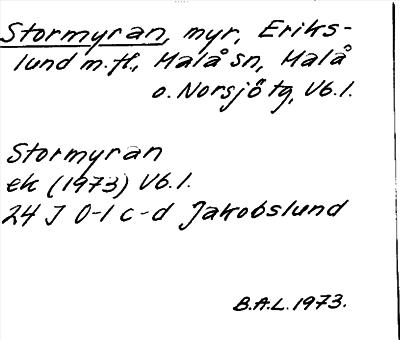 Stormyran, myr, Eriks-
lund m.fl., Malå sn, Malå
o. Norsjö tg, Vb.l.
Stormyran
ek (1973) Vb.l.
24 J 0-1 c-d Jakobslund
B.A.L. 1973.